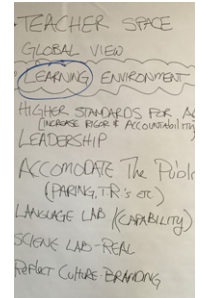 - TEACHER SPACE
GLOBAL VIEW
LEARNING ENVIRONMENT
HIGHER STANDARDS FOR
(INCREASE RIGOR & ACCOUNTABILITY
LEADERSHIP
ACCOMODATE The Public
(PARING, TR's etc)
LANGUAGE LAB (CAPABILITY)
SCIENC LAB - REAL
Reflect Culture - BRANDING